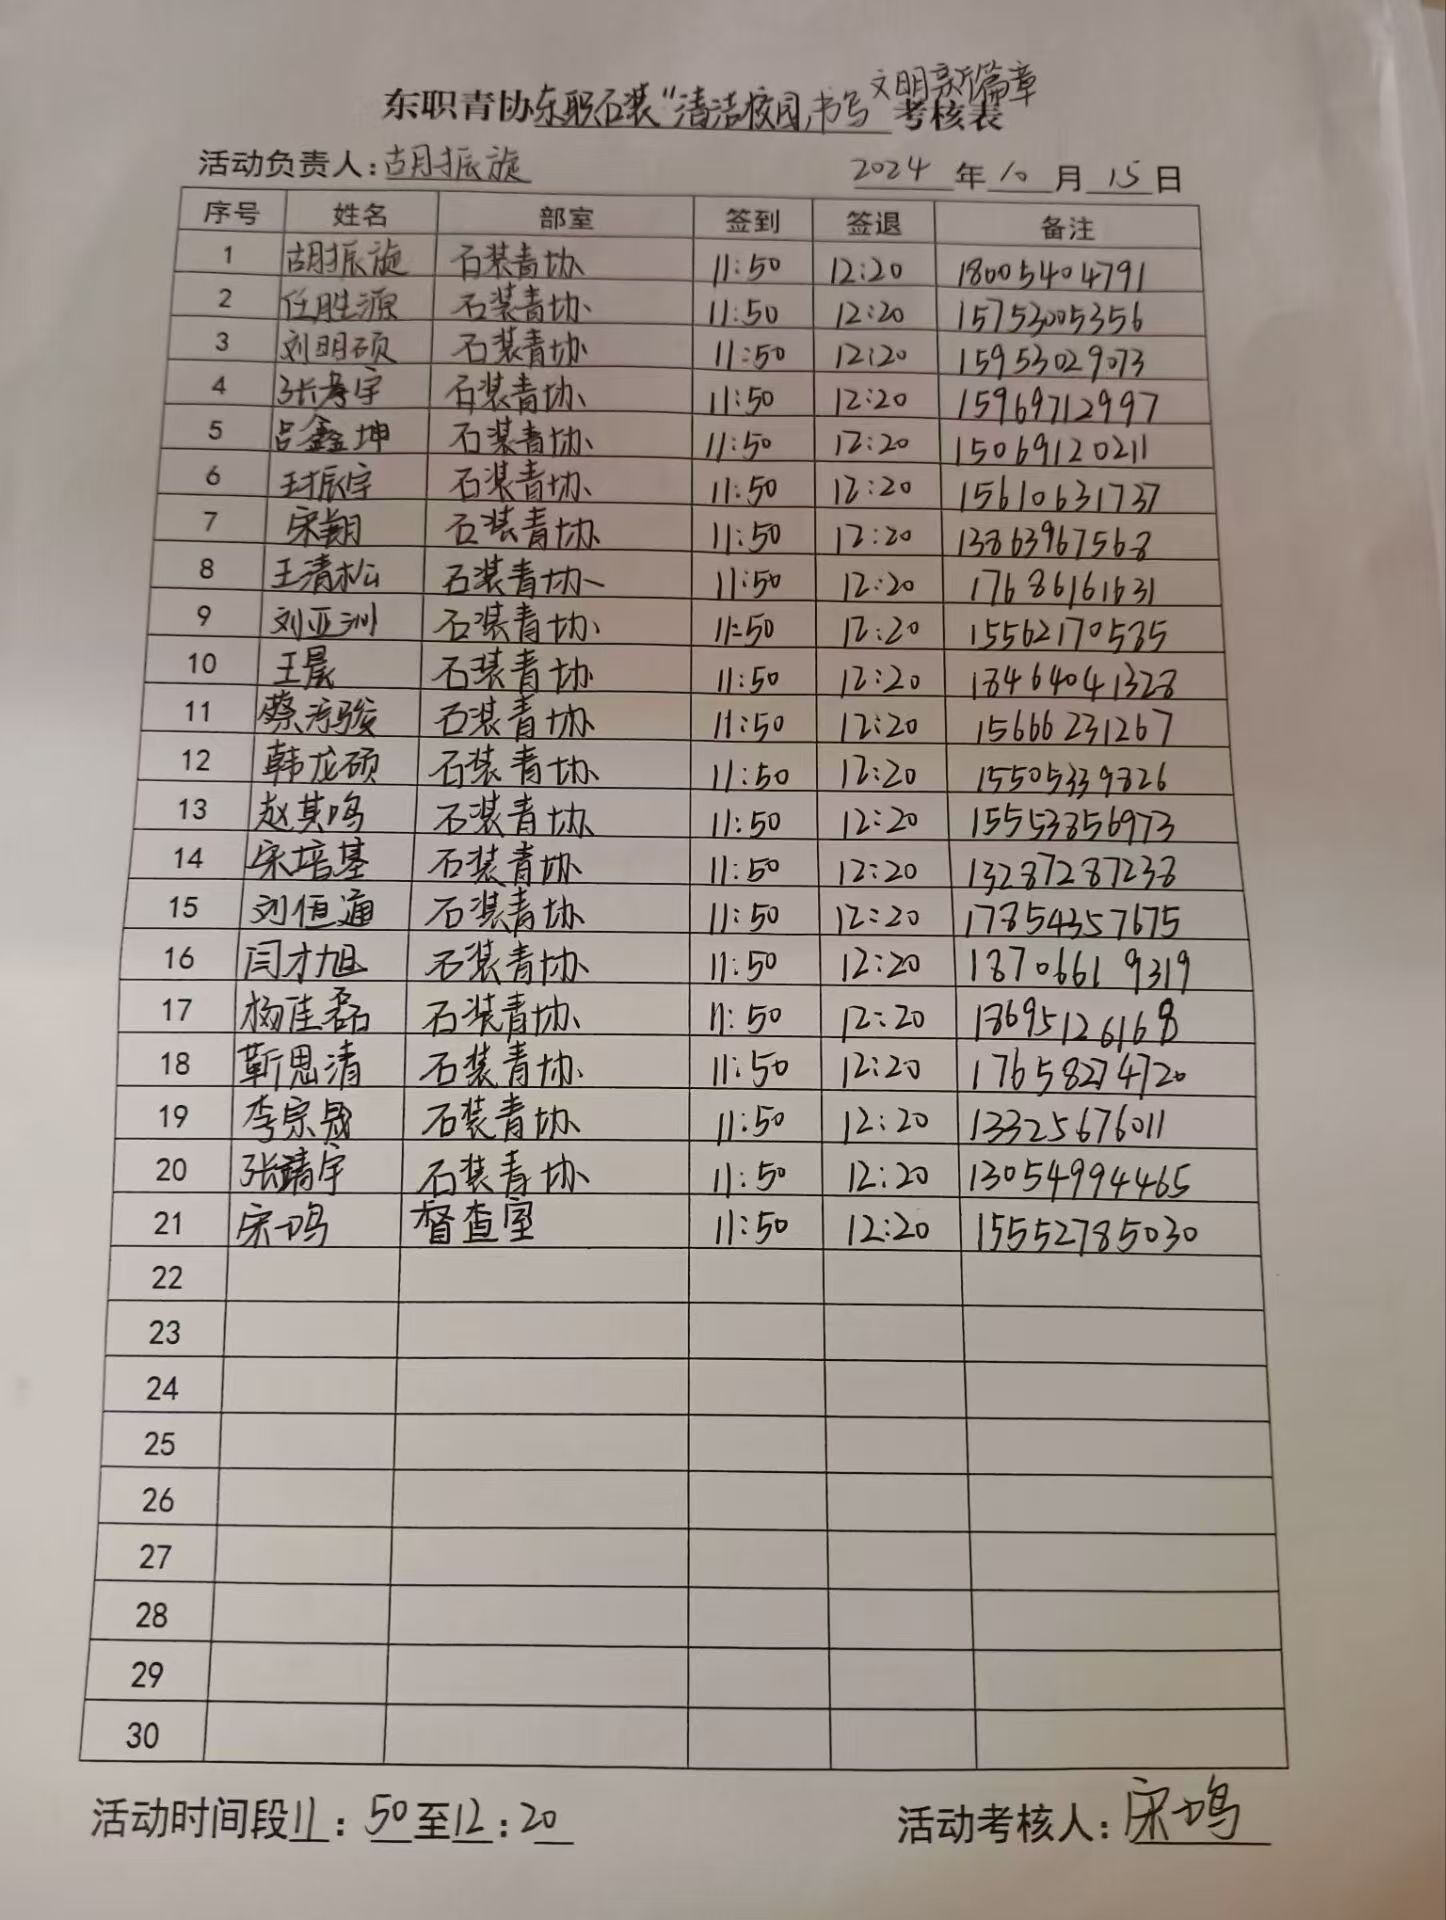 文明新篇章
东职青协东职石装“清洁校园,书写考核表
活动负责人:胡振旋 2024年10月15日
序号 姓名 部室 签到 签退 备注
1 胡振旋 石装青协 11:50 12:20 18005404791
2 任胜源 石装青协 11:50 12:20 15753005356
3 刘明硕 石装青协 11:50 12:20 15953029073
4 张孝宇 石装青协 11:50 12:20 15969712997
5 吕鑫坤 石装青协 11:50 12:20 15069120211
6 王振宇 石装青协 11:50 12:20 15610631737
7 宋翔 石装青协 11:50 12:20 13863967568
8 王清松 石装青协 11:50 12:20 17686161631
9 刘亚洲 石装青协 11:50 12:20 15562170535
10 王晨 石装青协 11:50 12:20 18464041328
11 石装青协 11:50 12:20 15666231267
12 韩龙硕 石装青协 11:50 12:20 15505339826
13 赵其鸣 石装青协 11:50 12:20 15553856973
14 宋培基 石装青协 11:50 12:20 13287287238
15 刘恒通 石装青协 11:50 12:20 17854357675
16 闫才旭 石装青协 11:50 12:20 18706619319
17 杨佳磊 石装青协 11:50 12:20 18695126168
18 靳思清 石装青协 11:50 12:20 17658274720
19 李宗晟 石装青协 11:50 12:20 13325676011
20 张靖宇 石装青协 11:50 12:20 13054994465
21 宋鸣 督查室 11:50 12:20 15552785030
22
23
24
25
26
27
28
29
30
活动时间段11:50至12:20 活动考核人:宋鸣